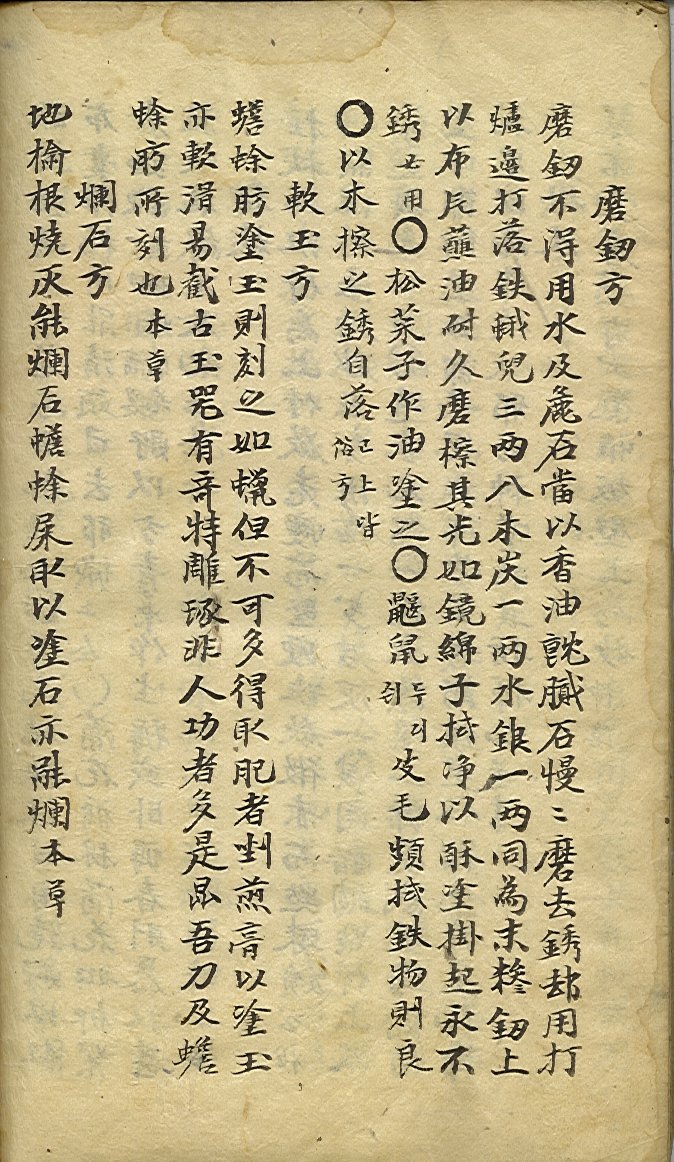 磨釰方
磨釰不得用水及麁石當以香油就膩石慢〻磨去銹却用打
爐邊打落鉄蛾兒三两八木炭一两水銀一两同為末糝釰上
以布片蘸油耐久磨擦其光如鏡綿子拭净以酥塗掛起永不
銹必用〇松菜子作油塗之〇鼴鼠두더쥐皮毛頻拭鉄物則良
〇以木擦之銹自落已上皆俗方
軟玉方
蟾蜍肪塗玉則刻之如蠟但不可多得取肥者剉煎膏以塗玉
亦軟滑易截古玉器有竒特雕琢非人功者多是昆吾刀及蟾
蜍肪所刻也本草
爛石方
地楡根燒灰能爛石蟾蜍屎取以塗石亦能爛本草